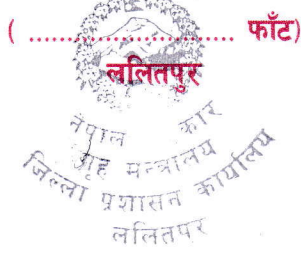 ( .................................. फाँट)
ललितपुर
नेपाल कार
गृह मन्त्रालय
जिल्ला प्रशासन कार्यालय
ललितपर